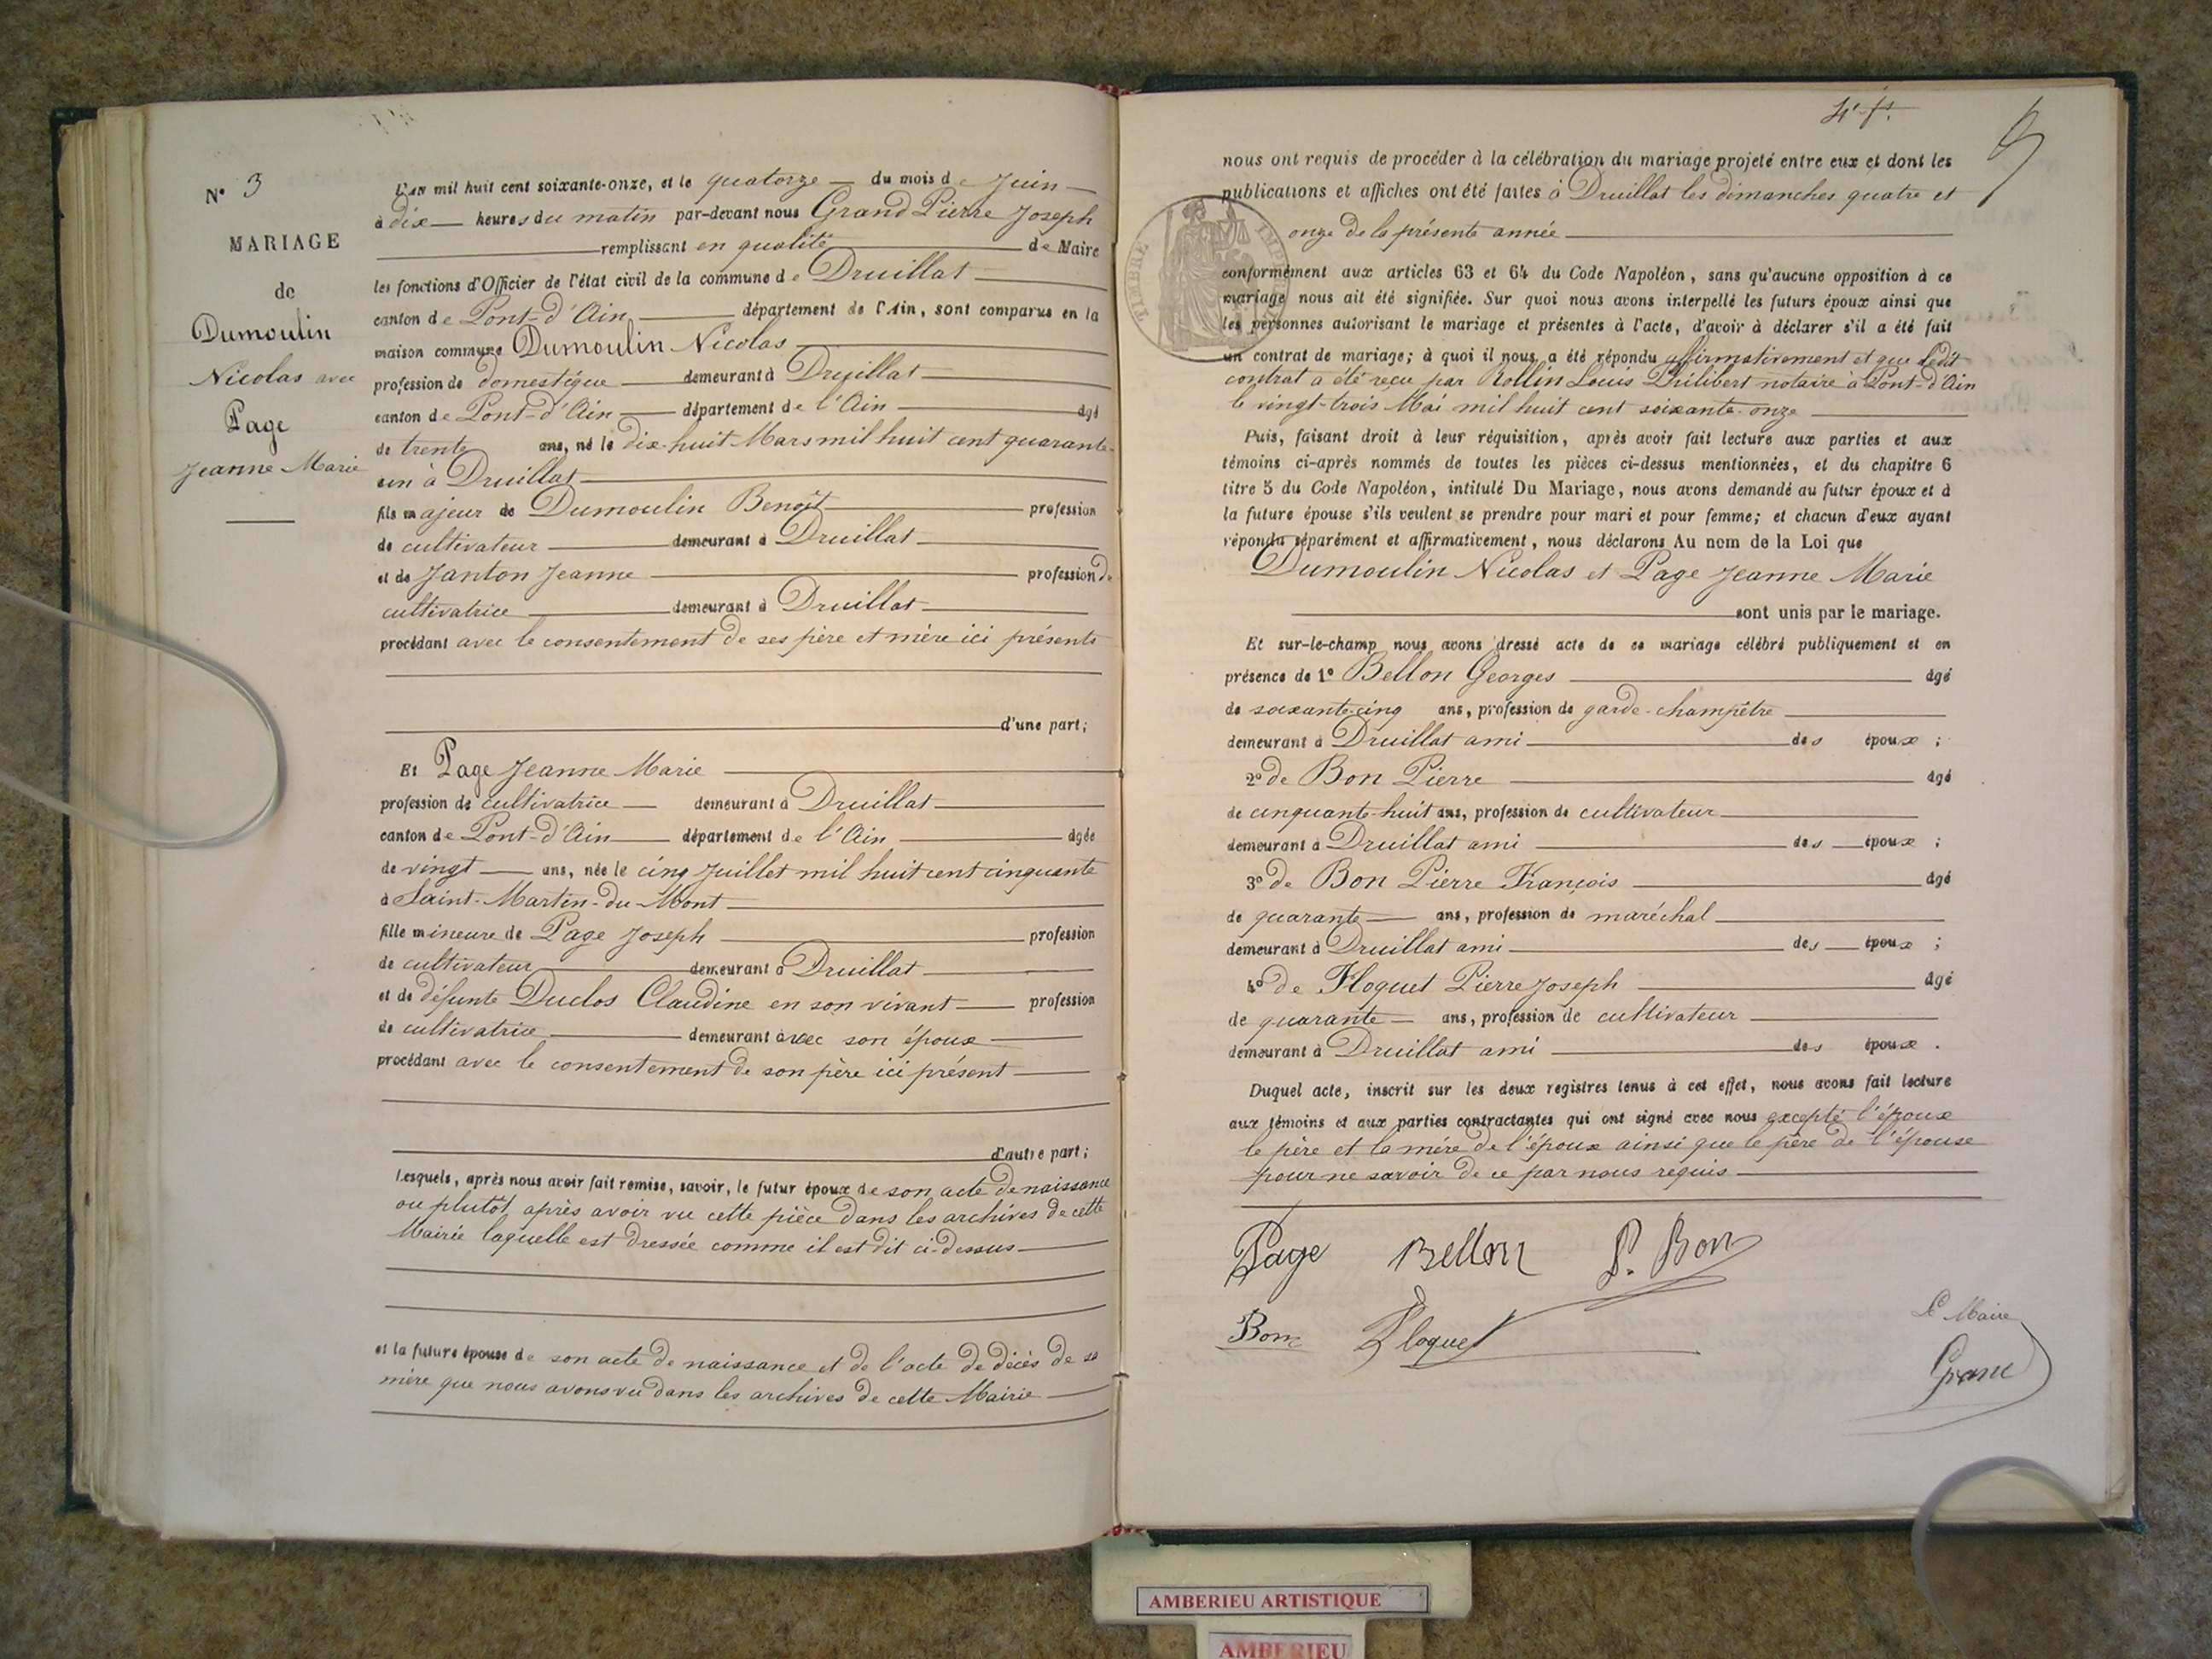 N° 3
MARIAGE
de
Dumoulin
Nicolas avec
Page
Jeanne Marie
L'an mil huit cent soixante-onze, et le quatorze du mois de Juin
à dix heures du matin par-devant nous Grand Pierre Joseph
remplissant en qualité de Maire
les fonctions d'Officier de l'état civil de la commune de Druillat
canton de Pont-d'Ain département de l'Ain, sont comparus en la
maison commune Dumoulin Nicolas
profession de domestique demeurant à Druillat
canton de Pont-d'Ain département de l'Ain âgé
de trente ans, né le dix-huit Mars mil huit cent quarante-
un à Druillat
fils majeur de Dumoulin Benoît profession
de cultivateur demeurant à Druillat
et de Janton Jeanne profession de
cultivatrice demeurant à Druillat
procédant avec le consentement de ses père et mère ici présents
d'une part;
Et Page Jeanne Marie
profession de cultivatrice demeurant à Druillat
canton de Pont-d'Ain département de l'Ain âgée
de vingt ans, née le cinq Juillet mil huit cent cinquante
à Saint-Martin-du-Mont
fille mineure de Page Joseph profession
de cultivateur demeurant à Druillat
et de défunte Duclos Claudine en son vivant profession
de cultivatrice demeurant avec son époux
procédant avec le consentement de son père ici présent
d'autre part;
Lesquels, après nous avoir fait remise, savoir, le futur époux de son acte de naissance
ou plutôt après avoir vu cette pièce dans les archives de cette
Mairie laquelle est dressée comme il est dit ci-dessus
et la future épouse de son acte de naissance et de l'acte de décès de sa
mère que nous avons vu dans les archives de cette Mairie
nous ont requis de procéder à la célébration du mariage projeté entre eux et dont les
publications et affiches ont été faites à Druillat les dimanches quatre et
onze de la présente année
conformément aux articles 63 et 64 du Code Napoléon, sans qu'aucune opposition à ce
mariage nous ait été signifiée. Sur quoi nous avons interpellé les futurs époux ainsi que
les personnes autorisant le mariage et présentes à l'acte, d'avoir à déclarer s'il a été fait
un contrat de mariage; à quoi il nous a été répondu affirmativement et que ledit
contrat a été reçu par Rollin Louis Philibert notaire à Pont-d'Ain
le vingt-trois Mai mil huit cent soixante-onze
Puis, faisant droit à leur réquisition, après avoir fait lecture aux parties et aux
témoins ci-après nommés de toutes les pièces ci-dessus mentionnées, et du chapitre 6
titre 5 du Code Napoléon, intitulé Du Mariage, nous avons demandé au futur époux et à
la future épouse s'ils veulent se prendre pour mari et pour femme; et chacun d'eux ayant
répondu séparément et affirmativement, nous déclarons Au nom de la Loi que
Dumoulin Nicolas et Page Jeanne Marie
sont unis par le mariage.
Et sur-le-champ nous avons dressé acte de ce mariage célébré publiquement et en
présence de 1° Bellon Georges âgé
de soixante-cinq ans, profession de garde-champêtre
demeurant à Druillat ami des époux ;
2° de Bon Pierre âgé
de cinquante-huit ans, profession de cultivateur
demeurant à Druillat ami des époux ;
3° de Bon Pierre François âgé
de quarante ans, profession de maréchal
demeurant à Druillat ami des époux ;
4° de Floquet Pierre Joseph âgé
de quarante ans, profession de cultivateur
demeurant à Druillat ami des époux .
Duquel acte, inscrit sur les deux registres tenus à cet effet, nous avons fait lecture
aux témoins et aux parties contractantes qui ont signé avec nous excepté l'époux
le père et la mère de l'époux ainsi que le père de l'épouse
pour ne savoir de ce par nous requis
Page Bellon P. Bon
Bon Floquet
Le Maire
Grand
TIMBRE IMPERIAL
AMBERIEU ARTISTIQUE
AMBERIEU